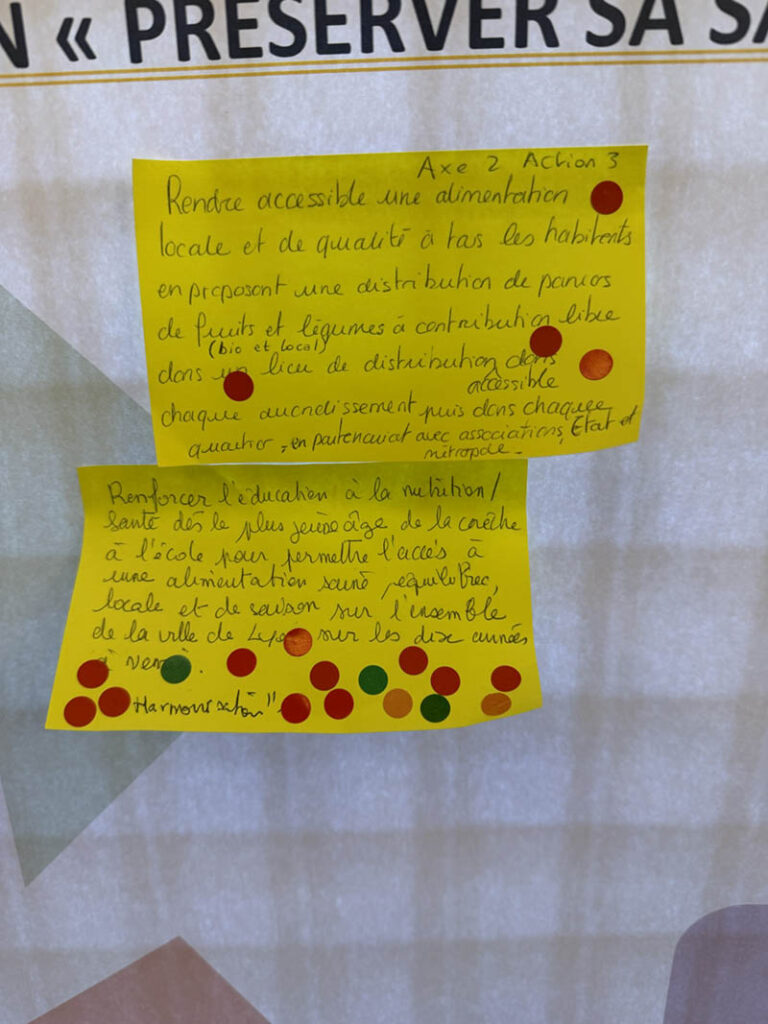 N « PRÉSERVER SA SA
Axe 2 Action 3
Rendre accessible une alimentation
locale et de qualité à tous les habitants
en proposant une distribution de paniers
de fruits et légumes à contribution libre
(bio et local)
dans un lieu de distribution dans
accessible
chaque arrondissement puis dans chaque
quartier, en partenariat avec associations, État et
métropole.
Renforcer l'éducation à la nutrition/
santé dès le plus jeune âge de la crèche
à l'école pour permettre l'accès à
une alimentation saine, équilibrée,
locale et de saison sur l'ensemble
de la ville de sur les dix années
à
"Harmonisation"